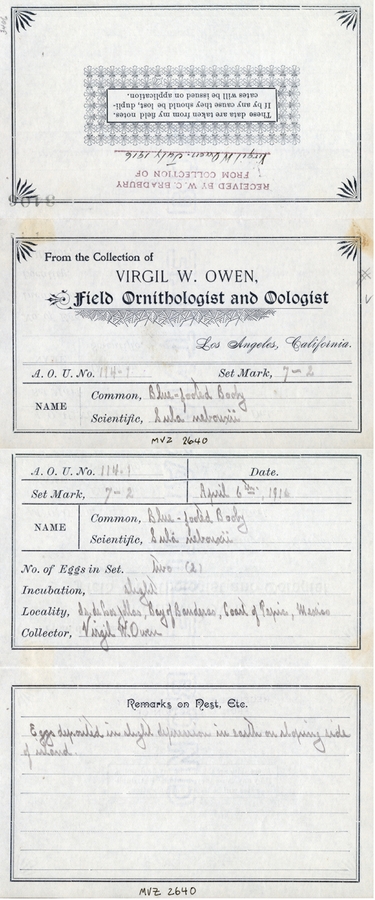 3106
These data are taken from my field notes.
If by any cause they should be lost, dupli-
cates will be issued on application.
Virgil W. Owen. July 1916
RECEIVED BY W. C. BRADBURY
FROM COLLECTION OF
3106
From the Collection of
VIRGIL W. OWEN,
Field Ornithologist and Oologist
Los Angeles, California.
A. O. U. No. 114-1 Set Mark, 7-2
NAME
Common, Blue-footed Booby
Scientific, Sula nebouxii
MVZ 2640
A. O. U. No. 114.1 Date.
Set Mark, 7-2 April 6th, 1916
NAME
Common, Blue-footed Booby
Scientific, Sula nebouxii
No. of Eggs in Set. two (2)
Incubation, slight
Locality, Bay of Banderas, Coast of Tepic, Mexico
Collector, Virgil W. Owen
Remarks on Nest, Etc.
Eggs deposited in slight depression in earth on sloping side
of island.
MVZ 2640